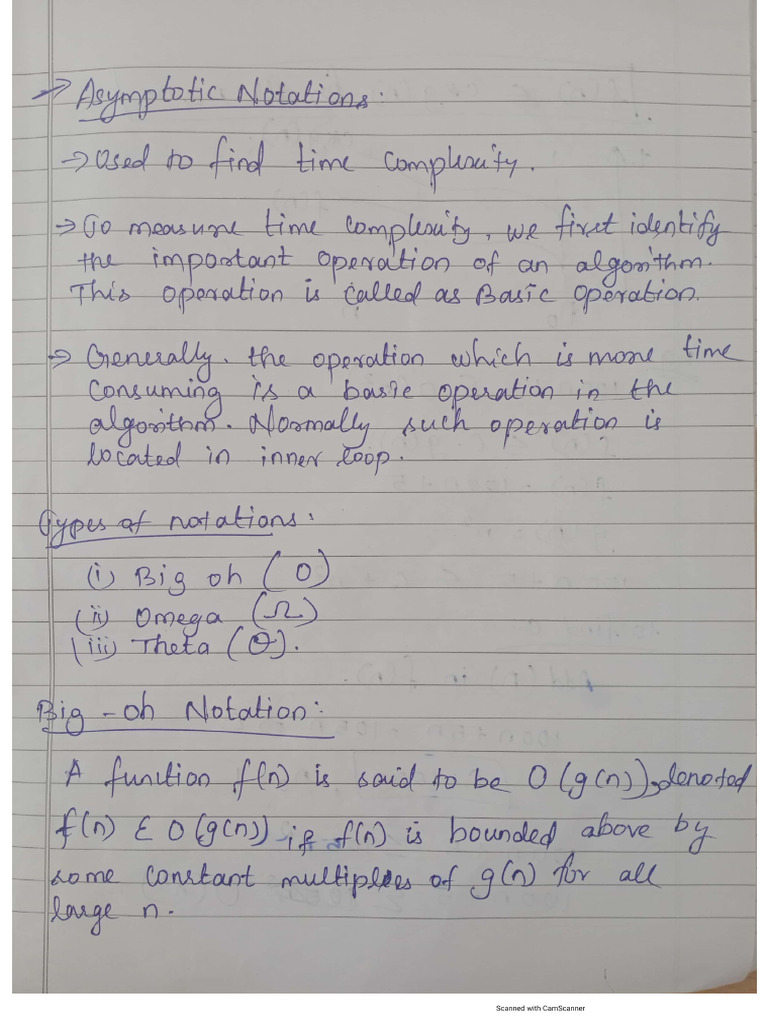 → Asymptotic Notations:
→ Used to find time complexity.
→ To measure time complexity, we first identify
the important operation of an algorithm.
This operation is called as Basic operation.
→ Generally, the operation which is more time
consuming is a basic operation in the
algorithm. Normally such operation is
located in inner loop.
Types of notations:
(i) Big oh (O)
(ii) Omega (Ω)
(iii) Theta (θ).
Big-oh Notation:
A function f(n) is said to be O(g(n)), denoted
f(n) ∈ O(g(n)) if f(n) is bounded above by
some constant multiples of g(n) for all
large n.
Scanned with CamScanner